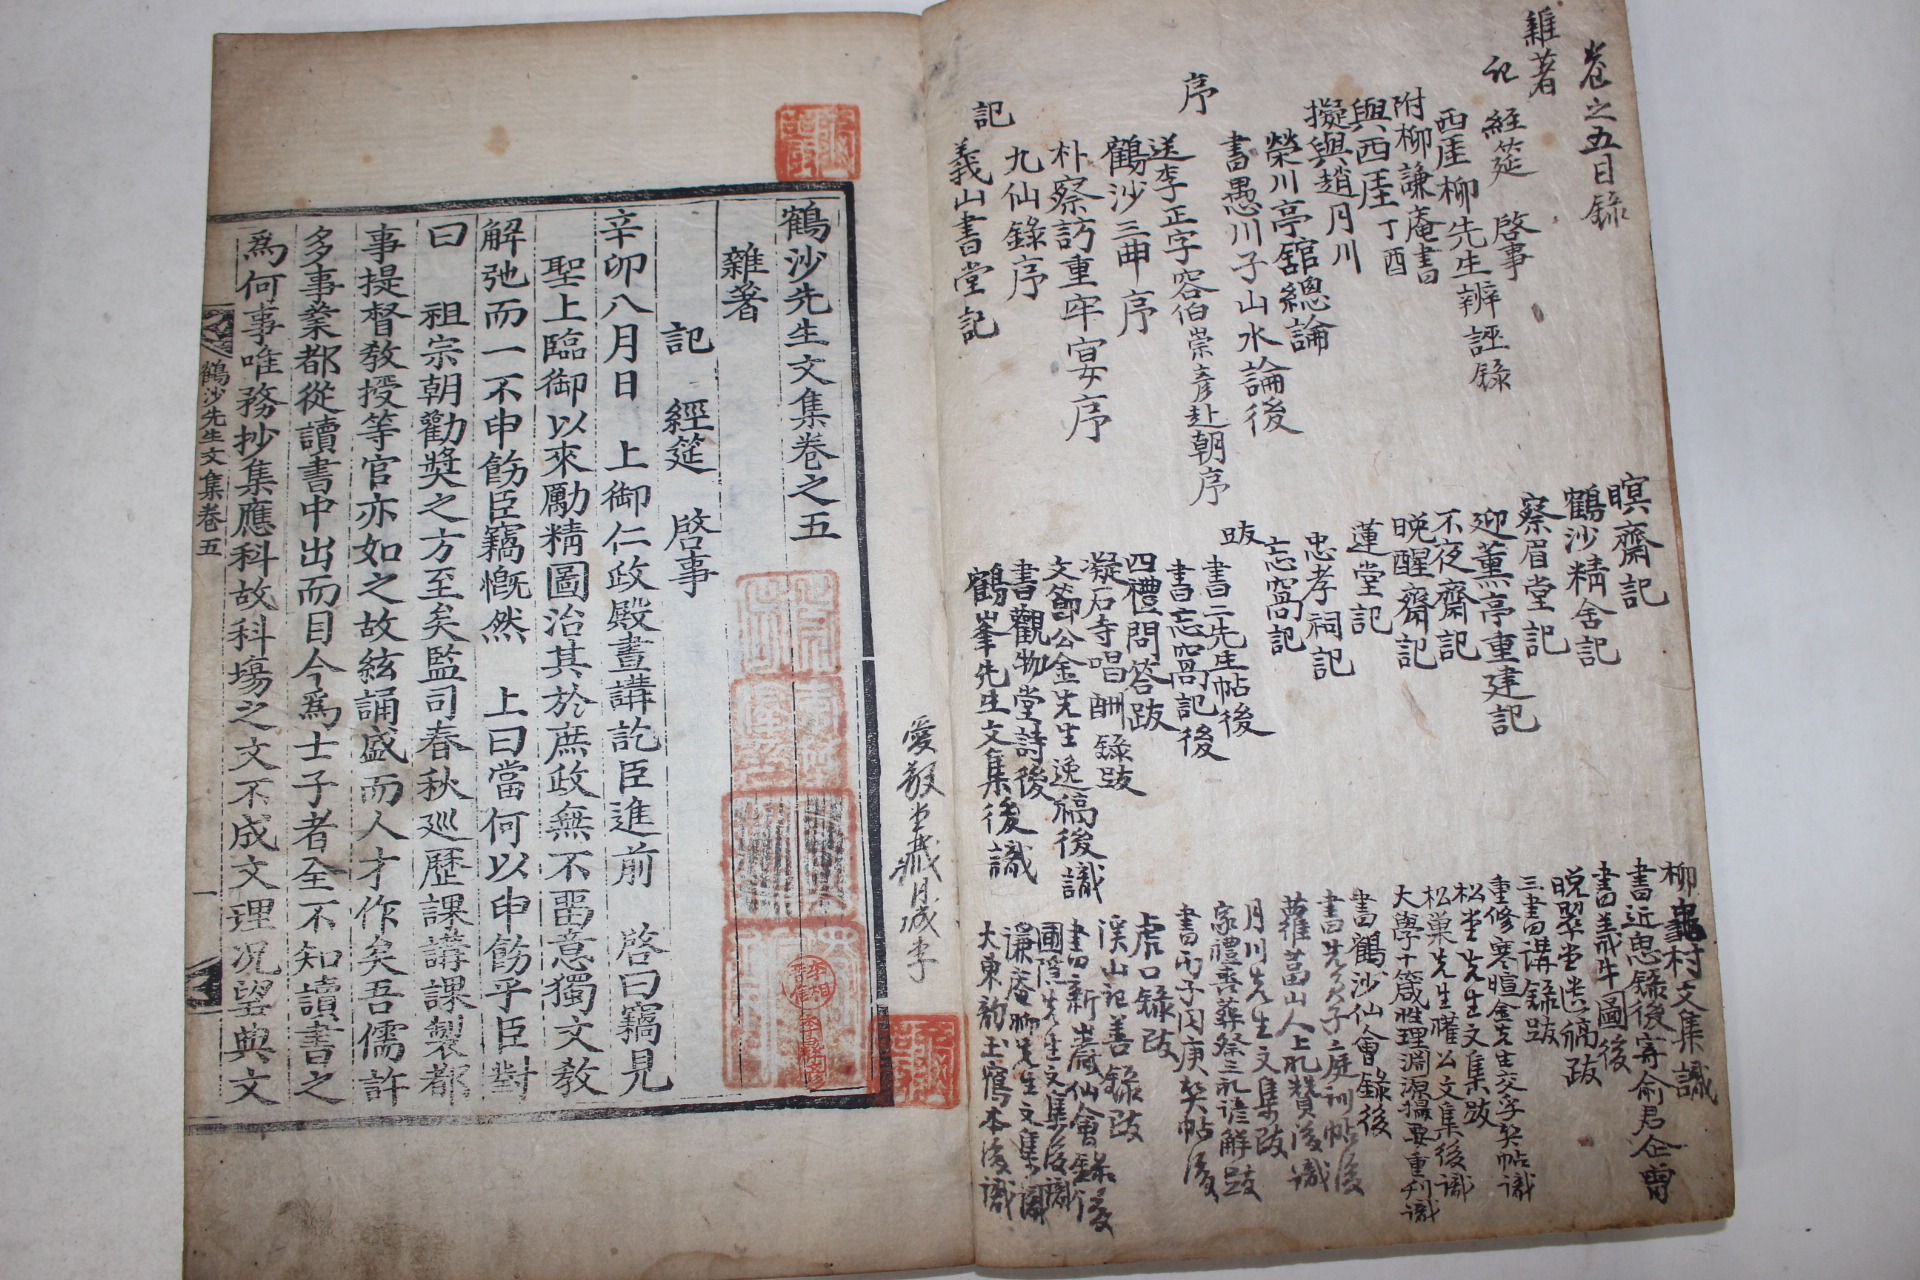 卷之五目錄
雜著
記 經筵 啓事
西厓柳先生辨誣錄
附柳謙庵書
與西厓丁酉
擬與趙月川
榮川亭舘總論
書愚川子山水論後
序
送李正字容伯崇彦赴朝序
鶴沙三曲序
朴察訪重牢宴序
九仙錄序
記
義山書堂記
暝齋記
鶴沙精舍記
察眉堂記
迎薰亭重建記
不夜齋記
晩醒齋記
蓮堂記
忠孝祠記
忘窩記
跋
書二先生帖後
書忘窩記後
四禮問答跋
凝石寺唱酬錄跋
文節公金先生逸稿後識
書觀物堂詩後
鶴峯先生文集後識
柳龜村文集識
書近思錄後寄俞君企曾
書羲牛圖後
晩翠堂遺稿跋
三書講錄跋
重修寒暄金先生交孚契帖識
松堂先生文集跋
松巢先生權公文集後識
大學十箴性理淵源撮要重刊識
書鶴沙仙會錄後
書先父子庭訓帖後
蘿菖山人上礼贊後識
家禮喪葬祭三礼諺解跋
月川先生文集跋
書丙子同庚契帖後
虎口錄跋
溪山記善錄跋
書新巖仙會錄後
圃隱先生文集後識
謙庵柳先生文集識
大東韵玉寫本後識
愛敬堂藏月城李
鶴沙先生文集卷之五
雜著
記 經筵 啓事
辛卯八月日 上御仁政殿晝講訖臣進前 啓曰竊見
聖上臨御以來勵精圖治其於庶政無不畱意獨文敎
解弛而一不申飭臣竊慨然 上曰當何以申飭乎臣對
曰 祖宗朝勸奬之方至矣監司春秋巡歷課講課製都
事提督敎授等官亦如之故絃誦盛而人才作矣吾儒許
多事業都從讀書中出而目今爲士子者全不知讀書之
爲何事唯務抄集應科故科場之文不成文理况望典文
鶴沙先生文集卷五 一